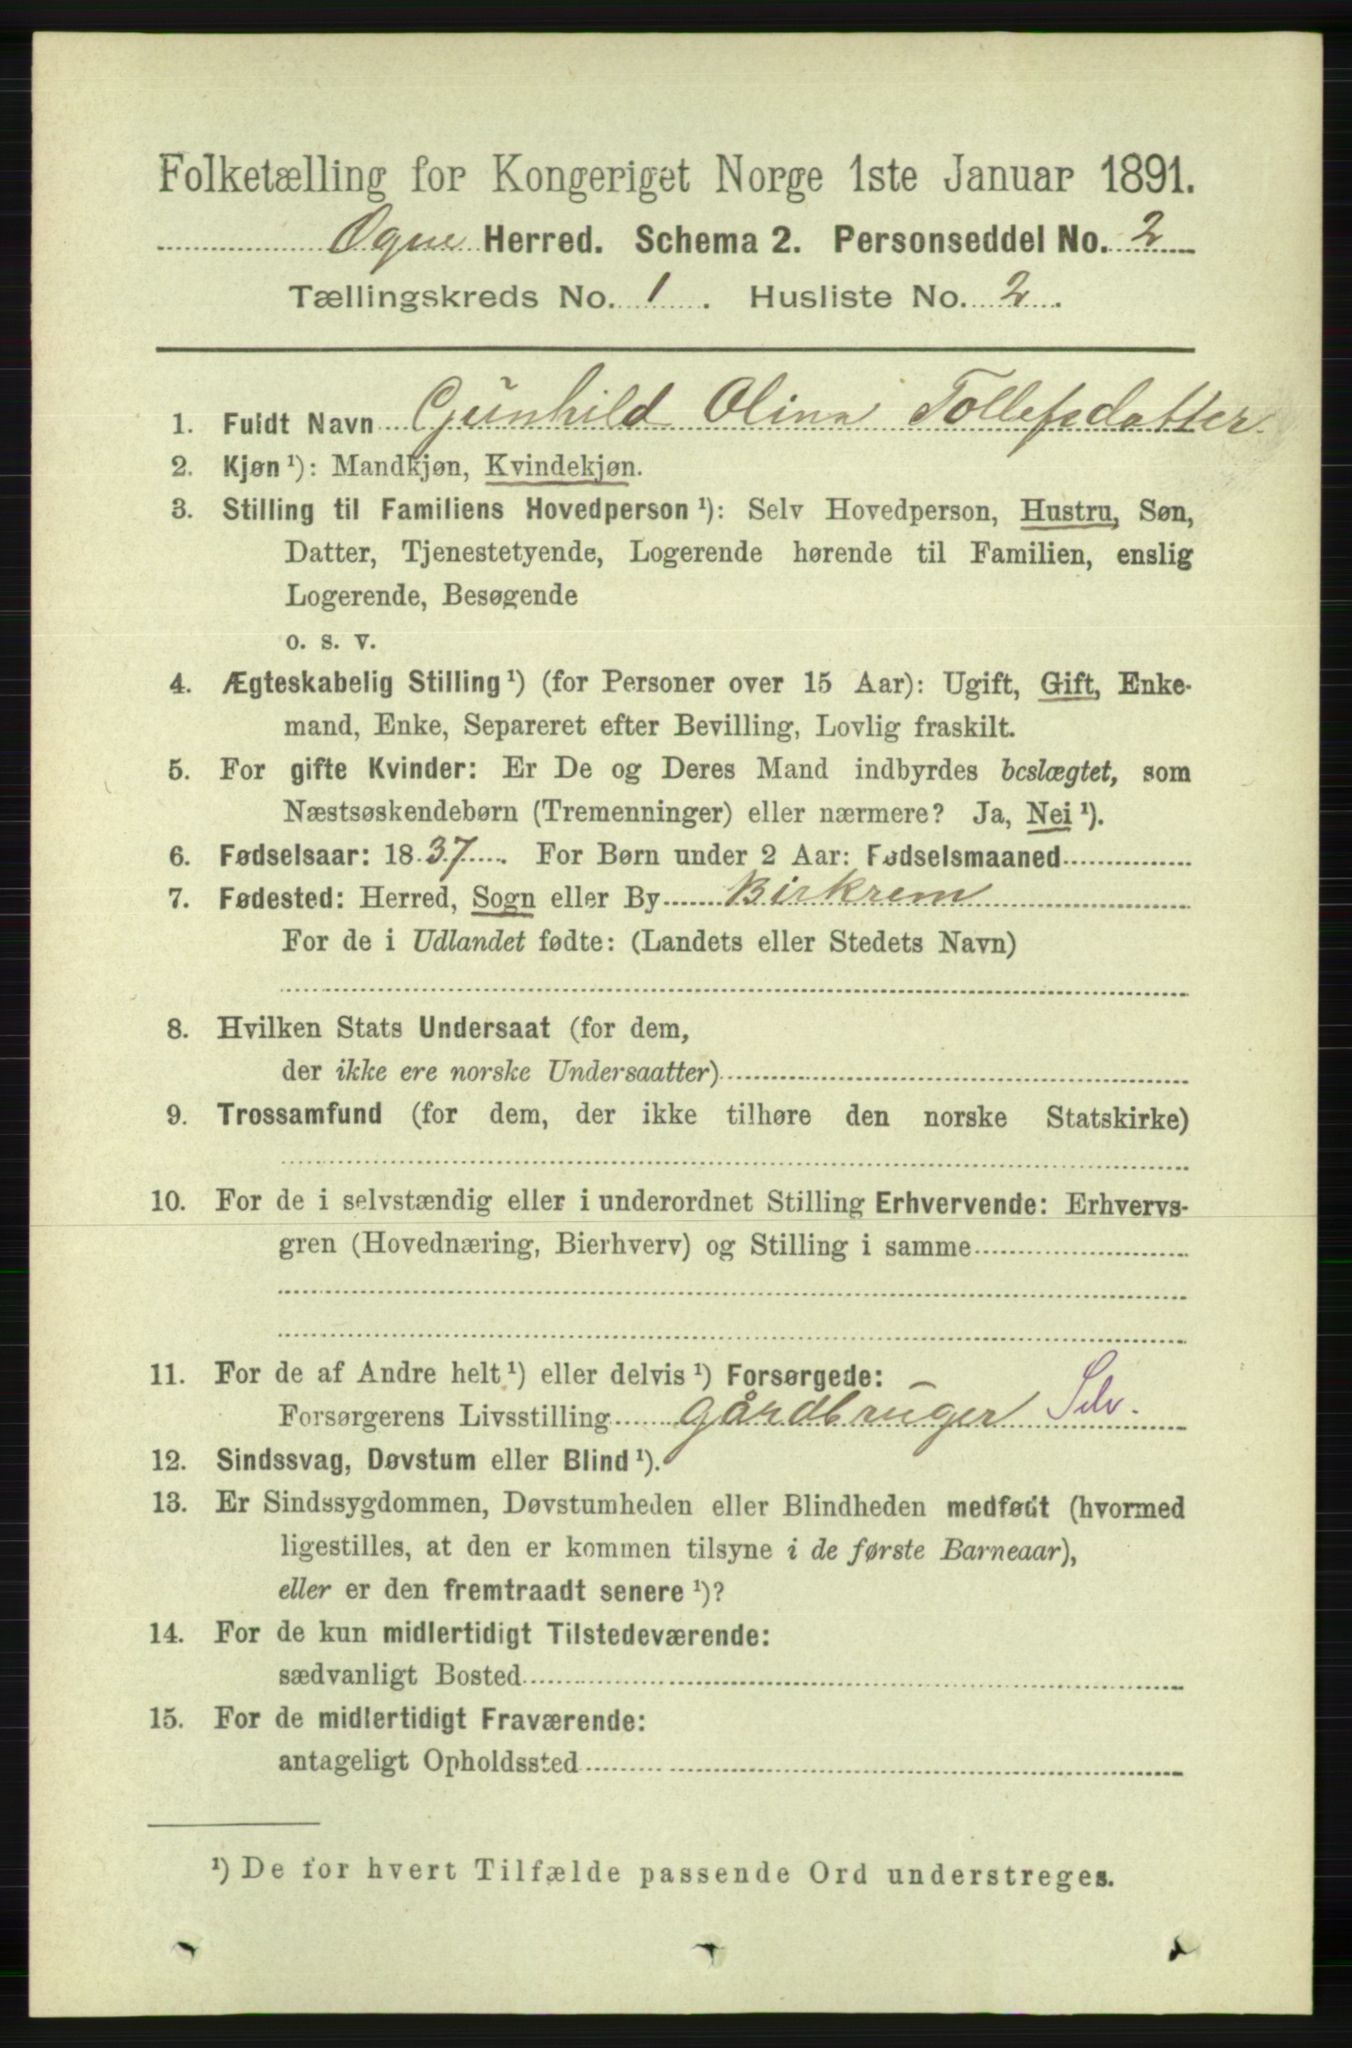 Folketælling for Kongeriget Norge 1ste Januar 1891.
Ogne Herred. Schema 2. Personseddel No. 2
Tællingskreds No. 1. Husliste No. 2.
1. Fuldt Navn Gunhild Olina Tollefsdatter.
2. Kjøn ¹): Mandkjøn, Kvindekjøn.
3. Stilling til Familiens Hovedperson ¹): Selv Hovedperson, Hustru, Søn,
Datter, Tjenestetyende, Logerende hørende til Familien, enslig
Logerende, Besøgende
o. s. v.
4. Ægteskabelig Stilling ¹) (for Personer over 15 Aar): Ugift, Gift, Enke-
mand, Enke, Separeret efter Bevilling, Lovlig fraskilt.
5. For gifte Kvinder: Er De og Deres Mand indbyrdes beslægtet, som
Næstsøskendebørn (Tremenninger) eller nærmere? Ja, Nei ¹).
6. Fødselsaar: 1837. For Børn under 2 Aar: Fødselsmaaned
7. Fødested: Herred, Sogn eller By Birkrem
For de i Udlandet fødte: (Landets eller Stedets Navn)
8. Hvilken Stats Undersaat (for dem,
der ikke ere norske Undersaatter)
9. Trossamfund (for dem, der ikke tilhøre den norske Statskirke)
10. For de i selvstændig eller i underordnet Stilling Erhvervende: Erhvervs-
gren (Hovednæring, Bierhverv) og Stilling i samme
11. For de af Andre helt ¹) eller delvis ¹) Forsørgede:
Forsørgerens Livsstilling gårdbruger Selv.
12. Sindssvag, Døvstum eller Blind ¹).
13. Er Sindssygdommen, Døvstumheden eller Blindheden medfødt (hvormed
ligestilles, at den er kommen tilsyne i de første Barneaar),
eller er den fremtraadt senere ¹)?
14. For de kun midlertidigt Tilstedeværende:
sædvanligt Bosted
15. For de midlertidigt Fraværende:
antageligt Opholdssted
¹) De for hvert Tilfælde passende Ord understreges.